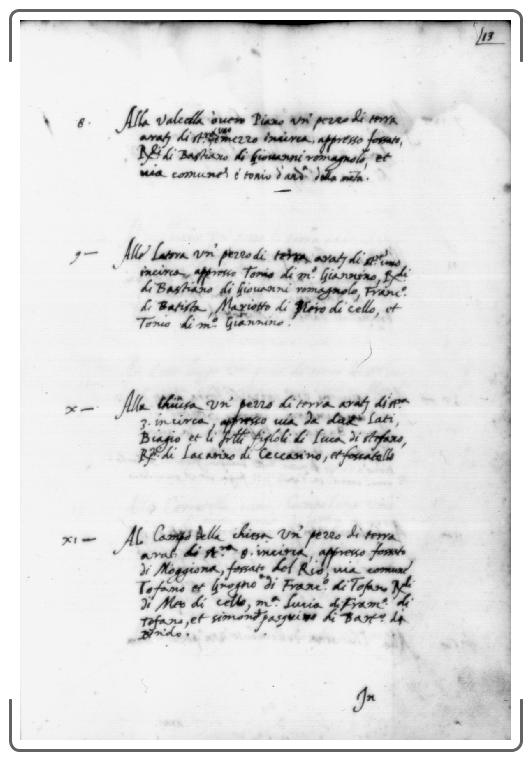 13
8. Alla Valcella overo Piano un' pezzo di terra
arat. di st. mezzo incirca, appresso fossato,
Rdi di Bastiano di Giovanni romagnolo, et
via comune e tonio d'and. della meta.
9 — Alle Latora un' pezzo di terra arat. di st. uno
incirca, appresso Tonio di m.o Giannino, Rdi
di Bastiano di Giovanni romagnolo, Franc.o
di Batista, Mariotto di Piero di cello, et
Tonio di m.o Giannino.
x — Alla chiusa un' pezzo di terra arat. di st.
3. incirca, appresso via da due Lati,
Biagio et li frlli figloli di Luca di stefano,
Rdi di Lacarino di Ceccarino, et fossatello
xi — Al Campo della chiesa un' pezzo di terra
arat. di st. 8. incirca, appresso fossato
di Moggiona, fossato del Rio, via comune
Tofano et di Franc.o di Tofano Rdi
di Meo di cello, m.a Lucia di di
Tofano, et simone pasquino di Bart.o di
Bindo.
In